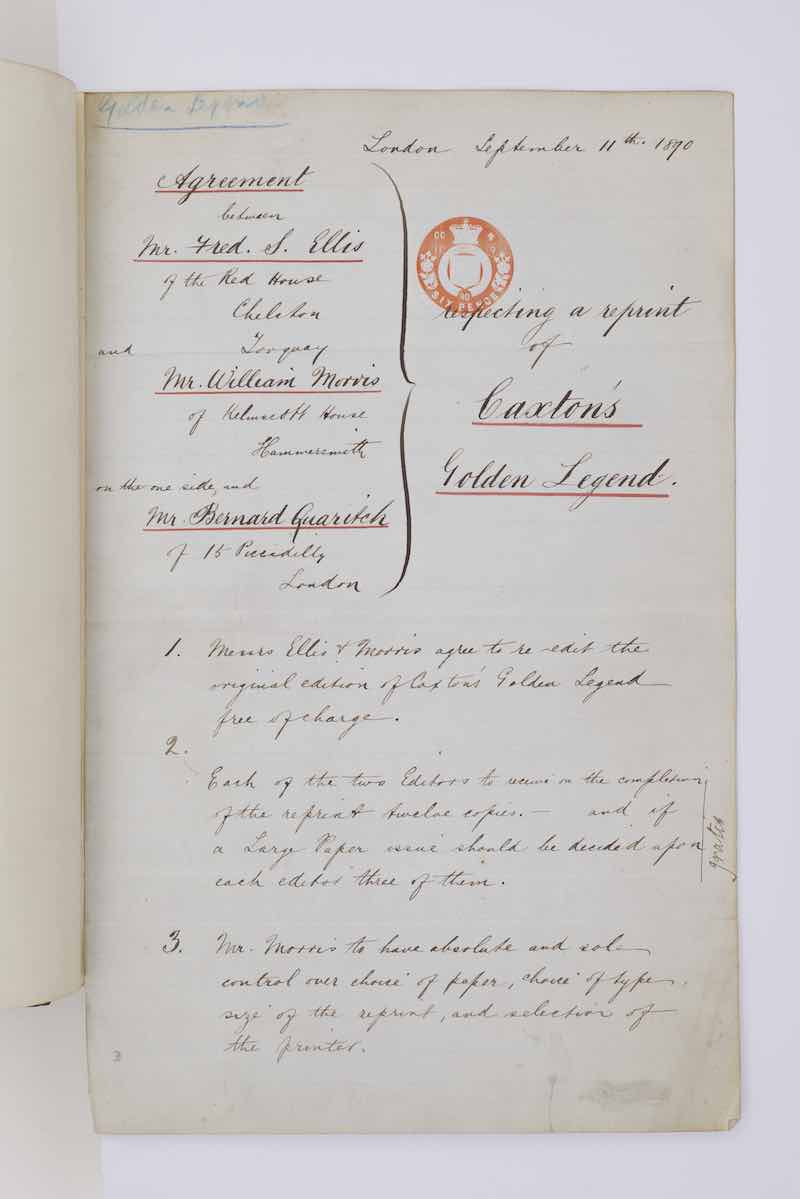 Golden Legend
London September 11th. 1890
Agreement
between
Mr. Fred. S. Ellis
of the Red House
Chelston
Torquay
and
Mr. William Morris
of Kelmscott House
Hammersmith
on the one side, and
Mr. Bernard Quaritch
of 15 Piccadilly
London
SIX PENCE
respecting a reprint
of
Caxton's
Golden Legend.
1. Messrs Ellis & Morris agree to re-edit the
original edition of Caxton's Golden Legend
free of charge.
2.
Each of the two Editors to receive on the completion
of the reprint twelve copies. — and if
a Large Paper issue should be decided upon
each editor three of them.
gratis
3. Mr. Morris to have absolute and sole
control over choice of paper, choice of type,
size of the reprint, and selection of
the printer.
3